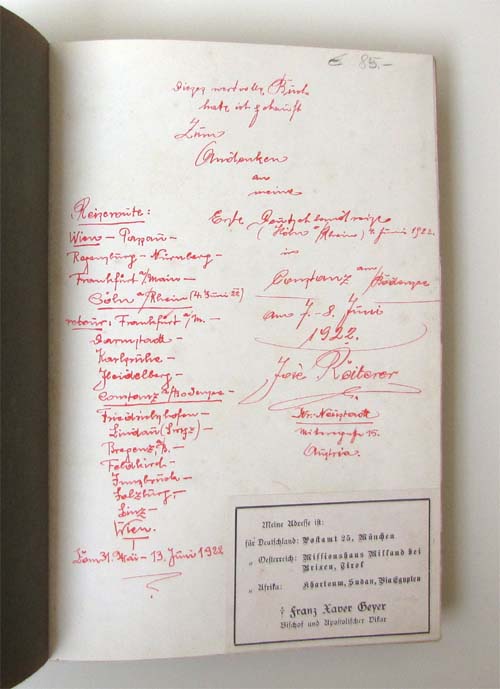 € 85,-
Dieses wertvolle Buch
habe ich gekauft
Zum
Andenken
an
meine
Erste Deutschlandreise
(Köln a/Rhein) 4. Juni 1922.
in
Constanz am Bodensee
am 7.-8. Juni
1922.
José Röiterer
Wr. Neustadt
15.
Austria.
Reiseroute:
Wien - Passau -
Regensburg - Nürnberg -
Frankfurt a/Main -
Cöln a/Rhein (4. Juni 22)
retour: Frankfurt a/M. -
Darmstadt -
Karlsruhe -
Heidelberg -
Constanz a/Bodensee -
Friedrichshafen -
Lindau (Insel) -
Bregenz, B. -
Feldkirch -
Innsbruck -
Salzburg, -
Linz -
Wien.
Vom 31. Mai - 13. Juni 1922
Meine Adresse ist:
für Deutschland: Postamt 25, München
„ Oesterreich: Missionshaus Milland bei
Brixen, Tirol
„ Afrika: Khartoum, Sudan, Via Egypten
† Franz Xaver Geyer
Bischof und Apostolischer Vikar